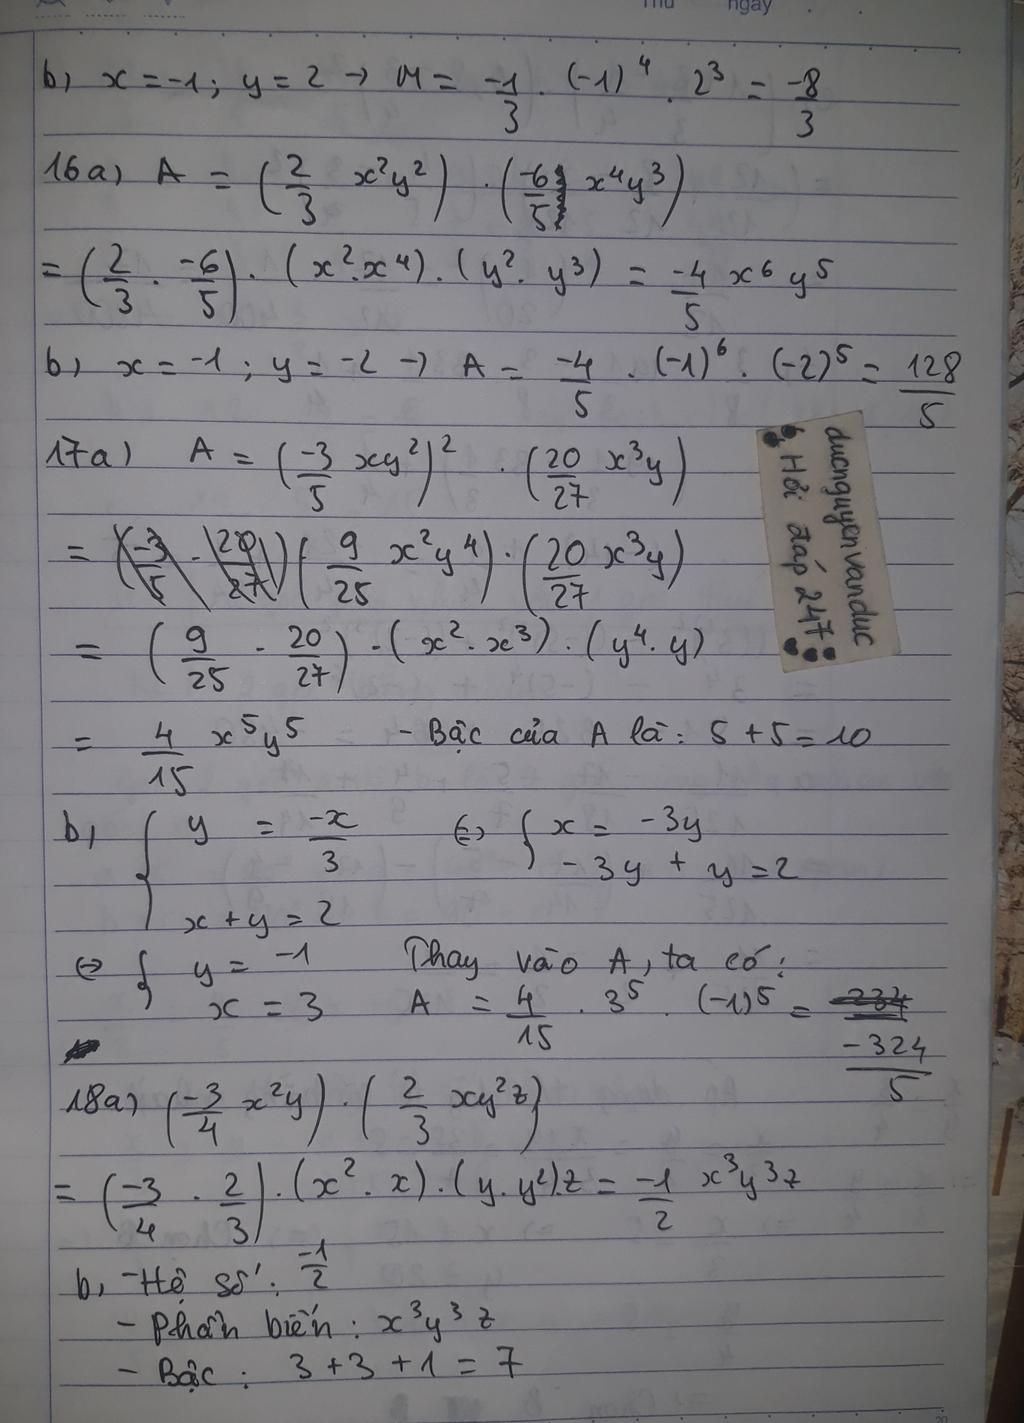 Thứ ngày
b, x = -1; y = 2 → M = -1/3 . (-1)^4 . 2^3 = -8/3
16a) A = (2/3 x²y²) . (-6/5 x⁴y³)
= (2/3 . -6/5) . (x² . x⁴) . (y² . y³) = -4/5 x⁶ y⁵
b, x = -1; y = -2 → A = -4/5 . (-1)⁶ . (-2)⁵ = 128/5
17a) A = (-3/5 xy²)² . (20/27 x³y)
= (9/25 x²y⁴) . (20/27 x³y)
= (9/25 . 20/27) . (x² . x³) . (y⁴ . y)
= 4/15 x⁵y⁵ - Bậc của A là: 5 + 5 = 10
b, { y = -x/3 ⇔ { x = -3y
- 3y + y = 2
x + y = 2
⇔ { y = -1 Thay vào A, ta có:
x = 3 A = 4/15 . 3⁵ . (-1)⁵ = -324/5
18a) (-3/4 x²y) . (2/3 xy²z)
= (-3/4 . 2/3) . (x² . x) . (y . y²) . z = -1/2 x³y³z
b, - Hệ số: -1/2
- Phần biến: x³y³z
- Bậc: 3 + 3 + 1 = 7
ducnguyenvanduc
Hỏi đáp 247